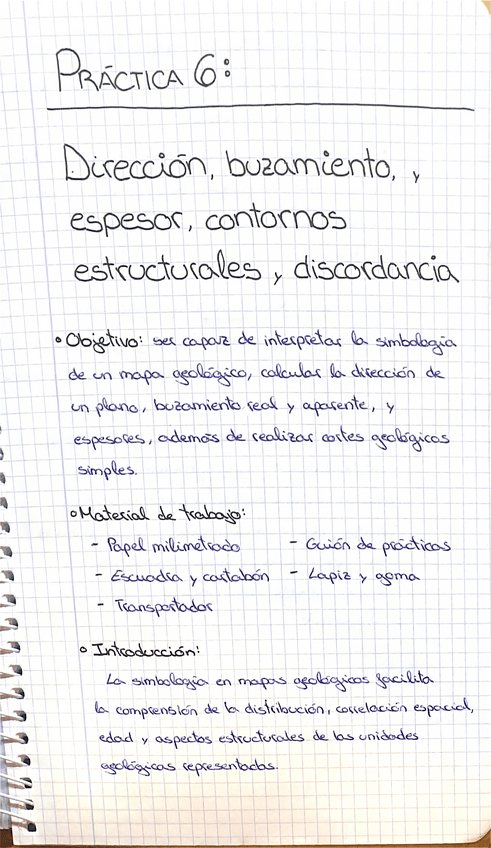 PRÁCTICA 6:
Dirección, buzamiento, y
espesor, contornos
estructurales y discordancia
• Objetivo: ser capaz de interpretar la simbología
de un mapa geológico, calcular la dirección de
un plano, buzamiento real y aparente, y
espesores, además de realizar cortes geológicos
simples.
• Material de trabajo:
- Papel milimetrado - Guión de prácticas
- Escuadra y cartabón - Lapiz y goma
- Transportador
• Introducción:
La simbología en mapas geológicos facilita
la comprensión de la distribución, correlación espacial,
edad y aspectos estructurales de las unidades
geológicas representadas.